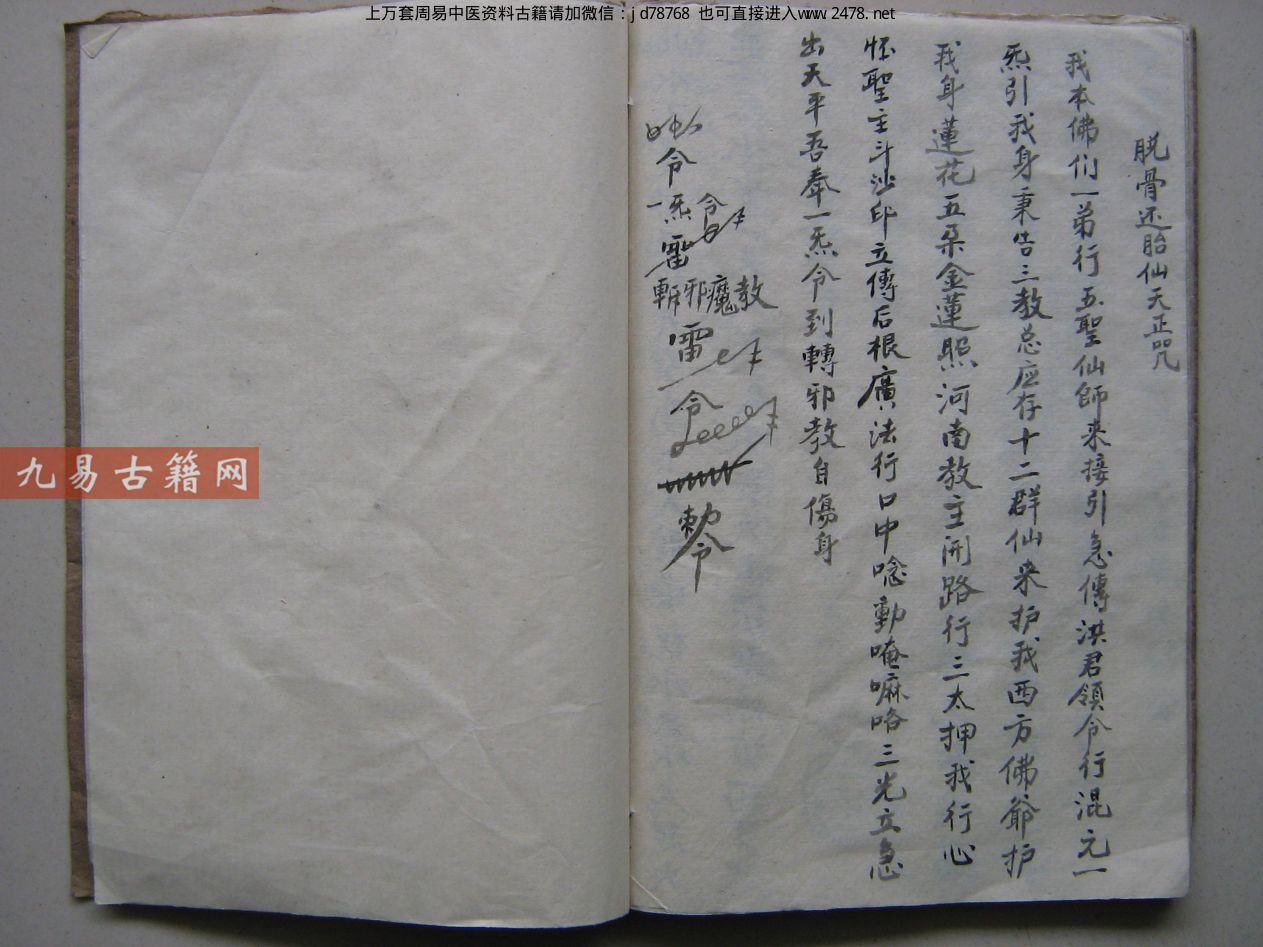 上万套周易中医资料古籍请加微信：jd78768 也可直接进入www.2478.net
脱骨还胎仙天正咒
我本佛们一弟行五聖仙師来接引急傳洪君領令行混元一
炁引我身秉告三教总应存十二群仙来护我西方佛爺护
我身蓮花五朵金蓮照河南教主开路行三太押我行心
怀聖主斗沙印立傳后根廣法行口中唸動唵嘛咯三光立急
出天平吾奉一炁令到轉邪教自傷身
令
一炁令
雷
斬邪魔教
雷
令
勅令
九易古籍网